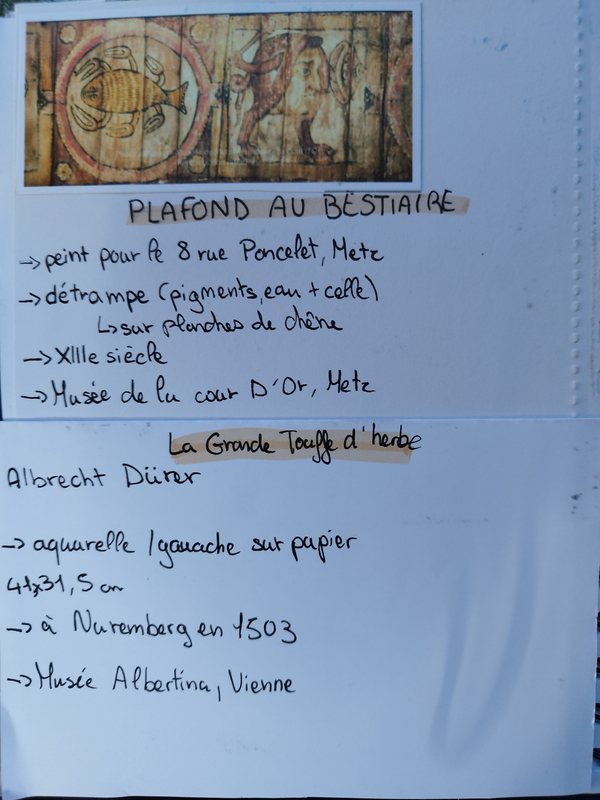 PLAFOND AU BESTIAIRE
→ peint pour le 8 rue Poncelet, Metz
→ détrampe (pigments, eau + colle)
↳ sur planches de chêne
→ XIIIe siècle
→ Musée de la cour D'Or, Metz
La Grande Touffe d'herbe
Albrecht Dürer
→ aquarelle / gouache sur papier
41x31,5 cm
→ à Nuremberg en 1503
→ Musée Albertina, Vienne